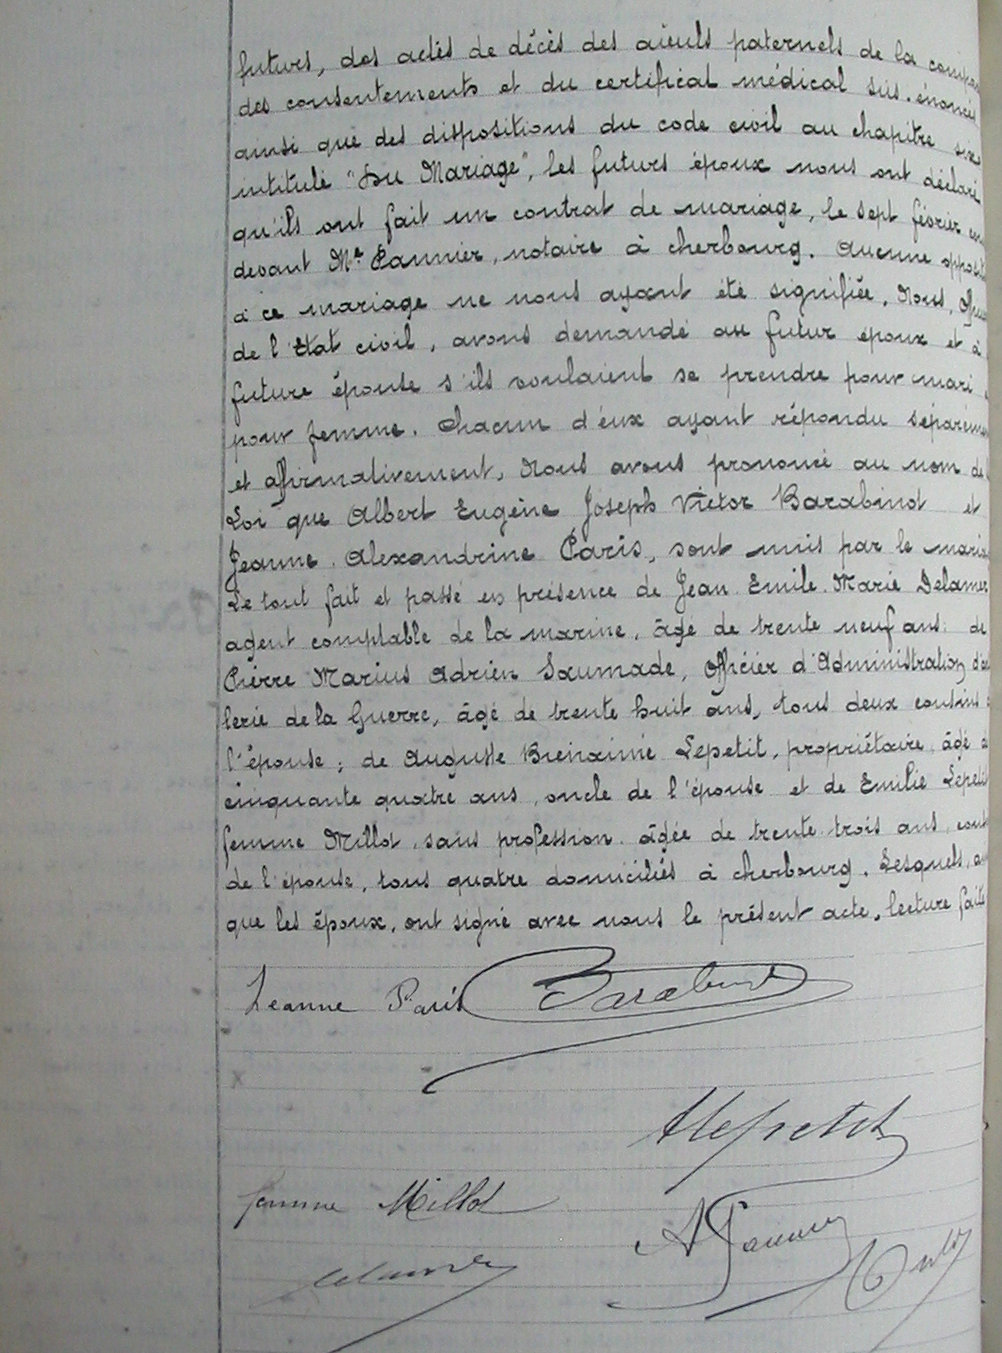 futurs, des actes de décès des aïeuls paternels de la compar
des consentements et du certificat médical sus-énoncés
ainsi que des dispositions du code civil au chapitre six
intitulé "Du Mariage", les futurs époux nous ont déclaré
qu'ils ont fait un contrat de mariage, le sept février
devant Me Pannier, notaire à cherbourg. Aucune opposit
à ce mariage ne nous ayant été signifiée. Nous,
de l'Etat civil, avons demandé au futur époux et à
future épouse s'ils voulaient se prendre pour mari
pour femme. Chacun d'eux ayant répondu séparémen
et affirmativement, Nous avons prononcé au nom de
Loi que Albert Eugène Joseph Victor Barabinot et
Jeanne Alexandrine Paris, sont unis par le maria
Le tout fait et passé en présence de Jean Emile Marie Delamer
agent comptable de la marine, âgé de trente neuf ans: de
Pierre Marius Adrien Saumade, Officier d'Administration d'
lerie de la Guerre, âgé de trente huit ans, tous deux cousins
l'épouse; de Auguste Bienaimé Lepetit, propriétaire, âgé
cinquante quatre ans, oncle de l'épouse et de Emilie Lepetit
femme Millot, sans profession, âgée de trente trois ans,
de l'épouse, tous quatre domiciliés à cherbourg. Lesquels,
que les époux, ont signé avec nous le présent acte, lecture faite
Jeanne Paris Barabinot
Lepetit
femme Millot